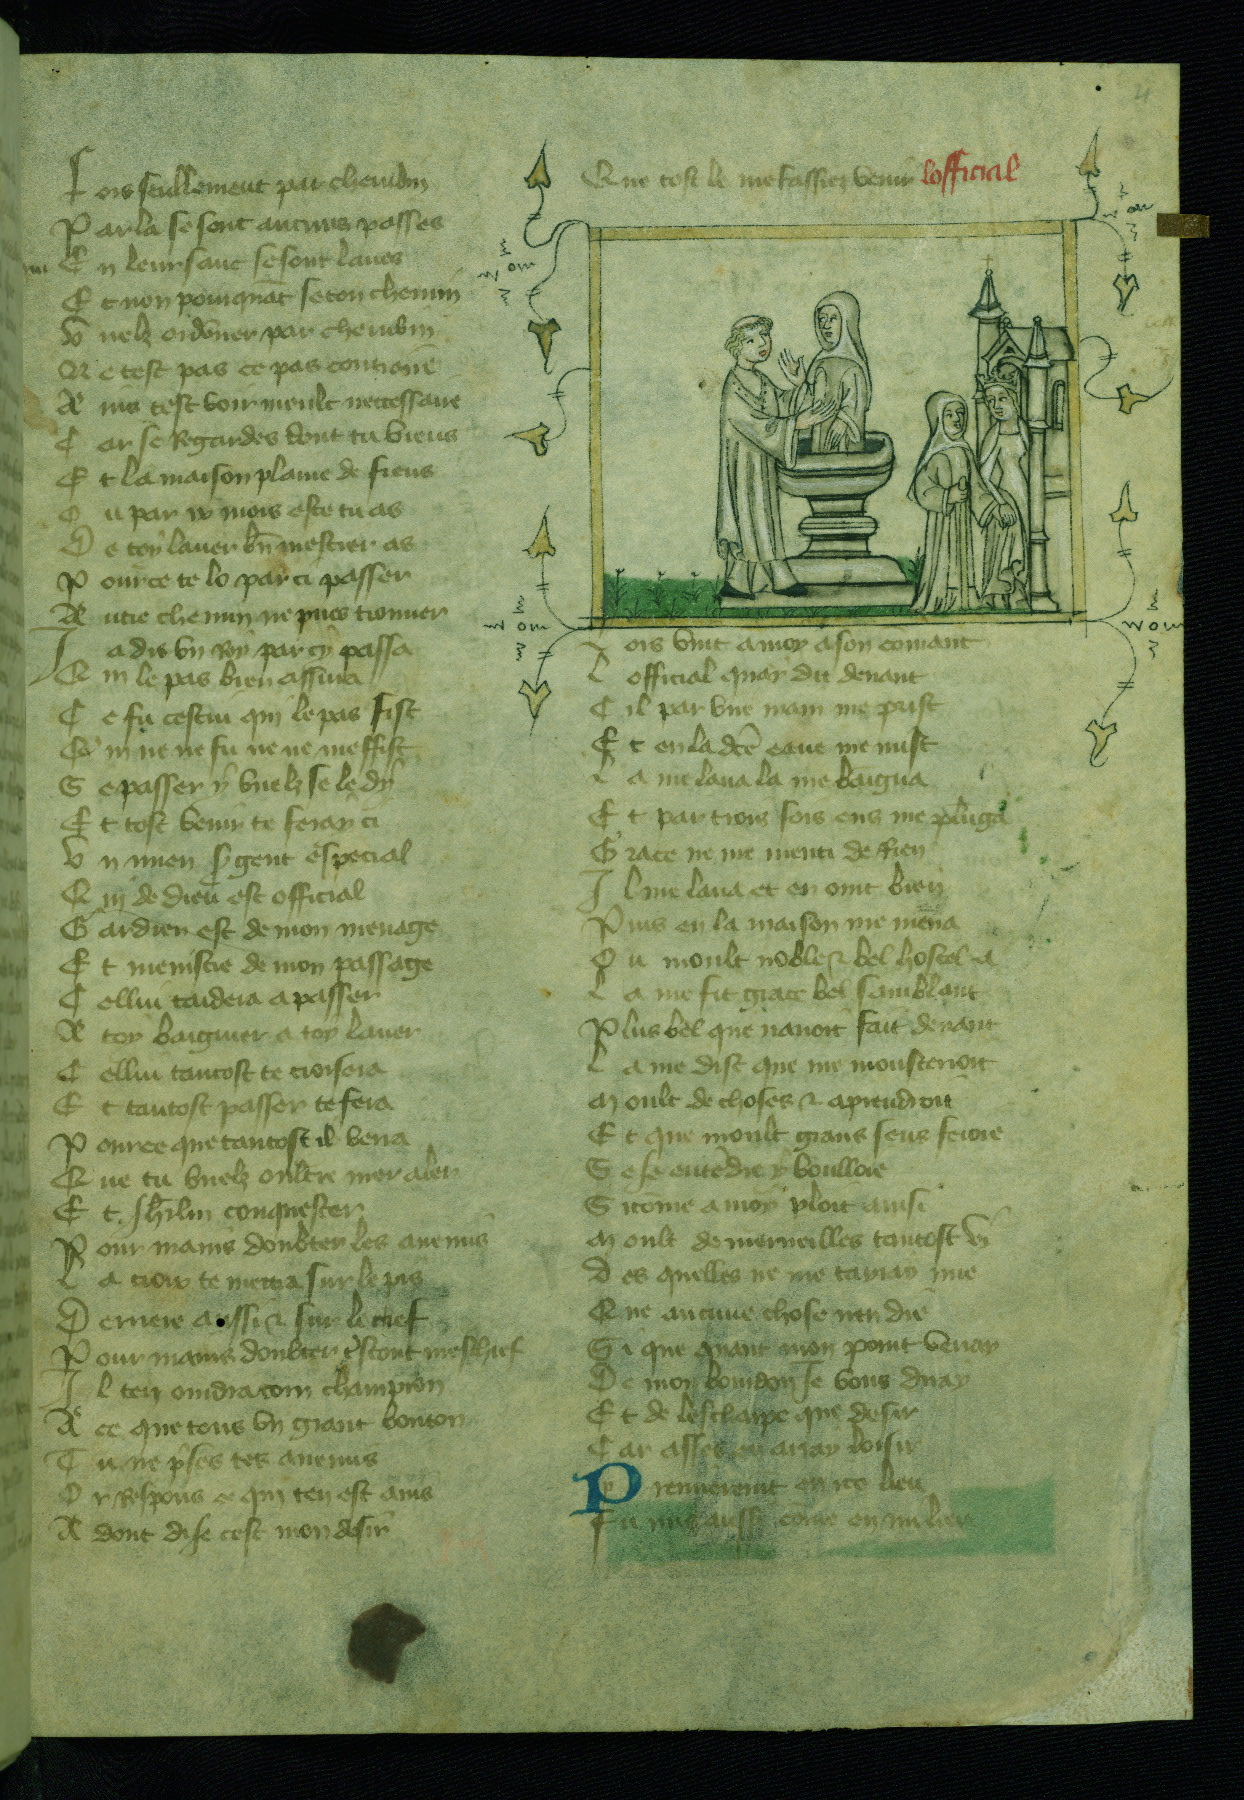 Fors seullement par cherubin
Par la se sont aucuns passes
En leur sanc se sont laves
Et non pourquāt se ton chemin
Vuelz ordōner par cherubin
Ne test pas ce pas contraire
Ains test voir moult necessaire
Car se regardes dont tu viens
Et la maison plaine de fiens
Ou par ix mois este tu as
De toy laver bn̄ mestier as
Pource te lo par ci passer
Autre chemin ne pues trouver
Jadis vn Roy par cy passa
Qui le pas bien assura
Ce fu cestui qui le pas fist
Qui ne fu ne ne meffist
Se passer y vuelz se le dy
Et tost venir te feray ci
Vn mien sergent especial
Qui de dieu est official
Gardien est de mon menage
Et menistre de mon passage
Cellui taidera a passer
A toy baigner a toy laver
Cellui tantost te croisera
Et tantost passer te fera
Pource que tantost il verra
Que tu vuelz oultre mer aler
Et iherlm conquester
Pour mains doubter les anemis
La croix te mettra sur le pis
Derriere aussi & sur le chief
Pour mains doubter t'stout meschief
Il ten oindra com champion
A ce que tous vn grant bouton
Tu ne p̄ses tes anemis
Or respons ce qui ten est auis
Adont dis ie cest mon desir
Que tost le me fassiez venir lofficial
Lors vint a moy a son comant
Lofficial quay dit devant
Cil par vne main me prist
Et en la dc̄e eaue me mist
La me lava la me baigna
Et par trois fois ens me pluga
Grace ne me menti de rien
Il me lava et en oint bien
Puis en la maison me mena
Ou moult noble & bel hostel a
La me fit grace bel samblant
Plus bel que navoit fait devant
La me dist que me monsteroit
Moult de choses & aprendroit
Et que moult grans sens feroie
Se ie entēdre y vouloie
Sicōme a moy ploit ainsi
Moult de merveilles tantost vi
Des quelles ne me tairay mie
Que aucune chose nen die
Si que quant mon point verray
De mon bourdon Je vous diray
Et de lescharpe que desir
Car asses en aray loisir
Premierement en ice lieu